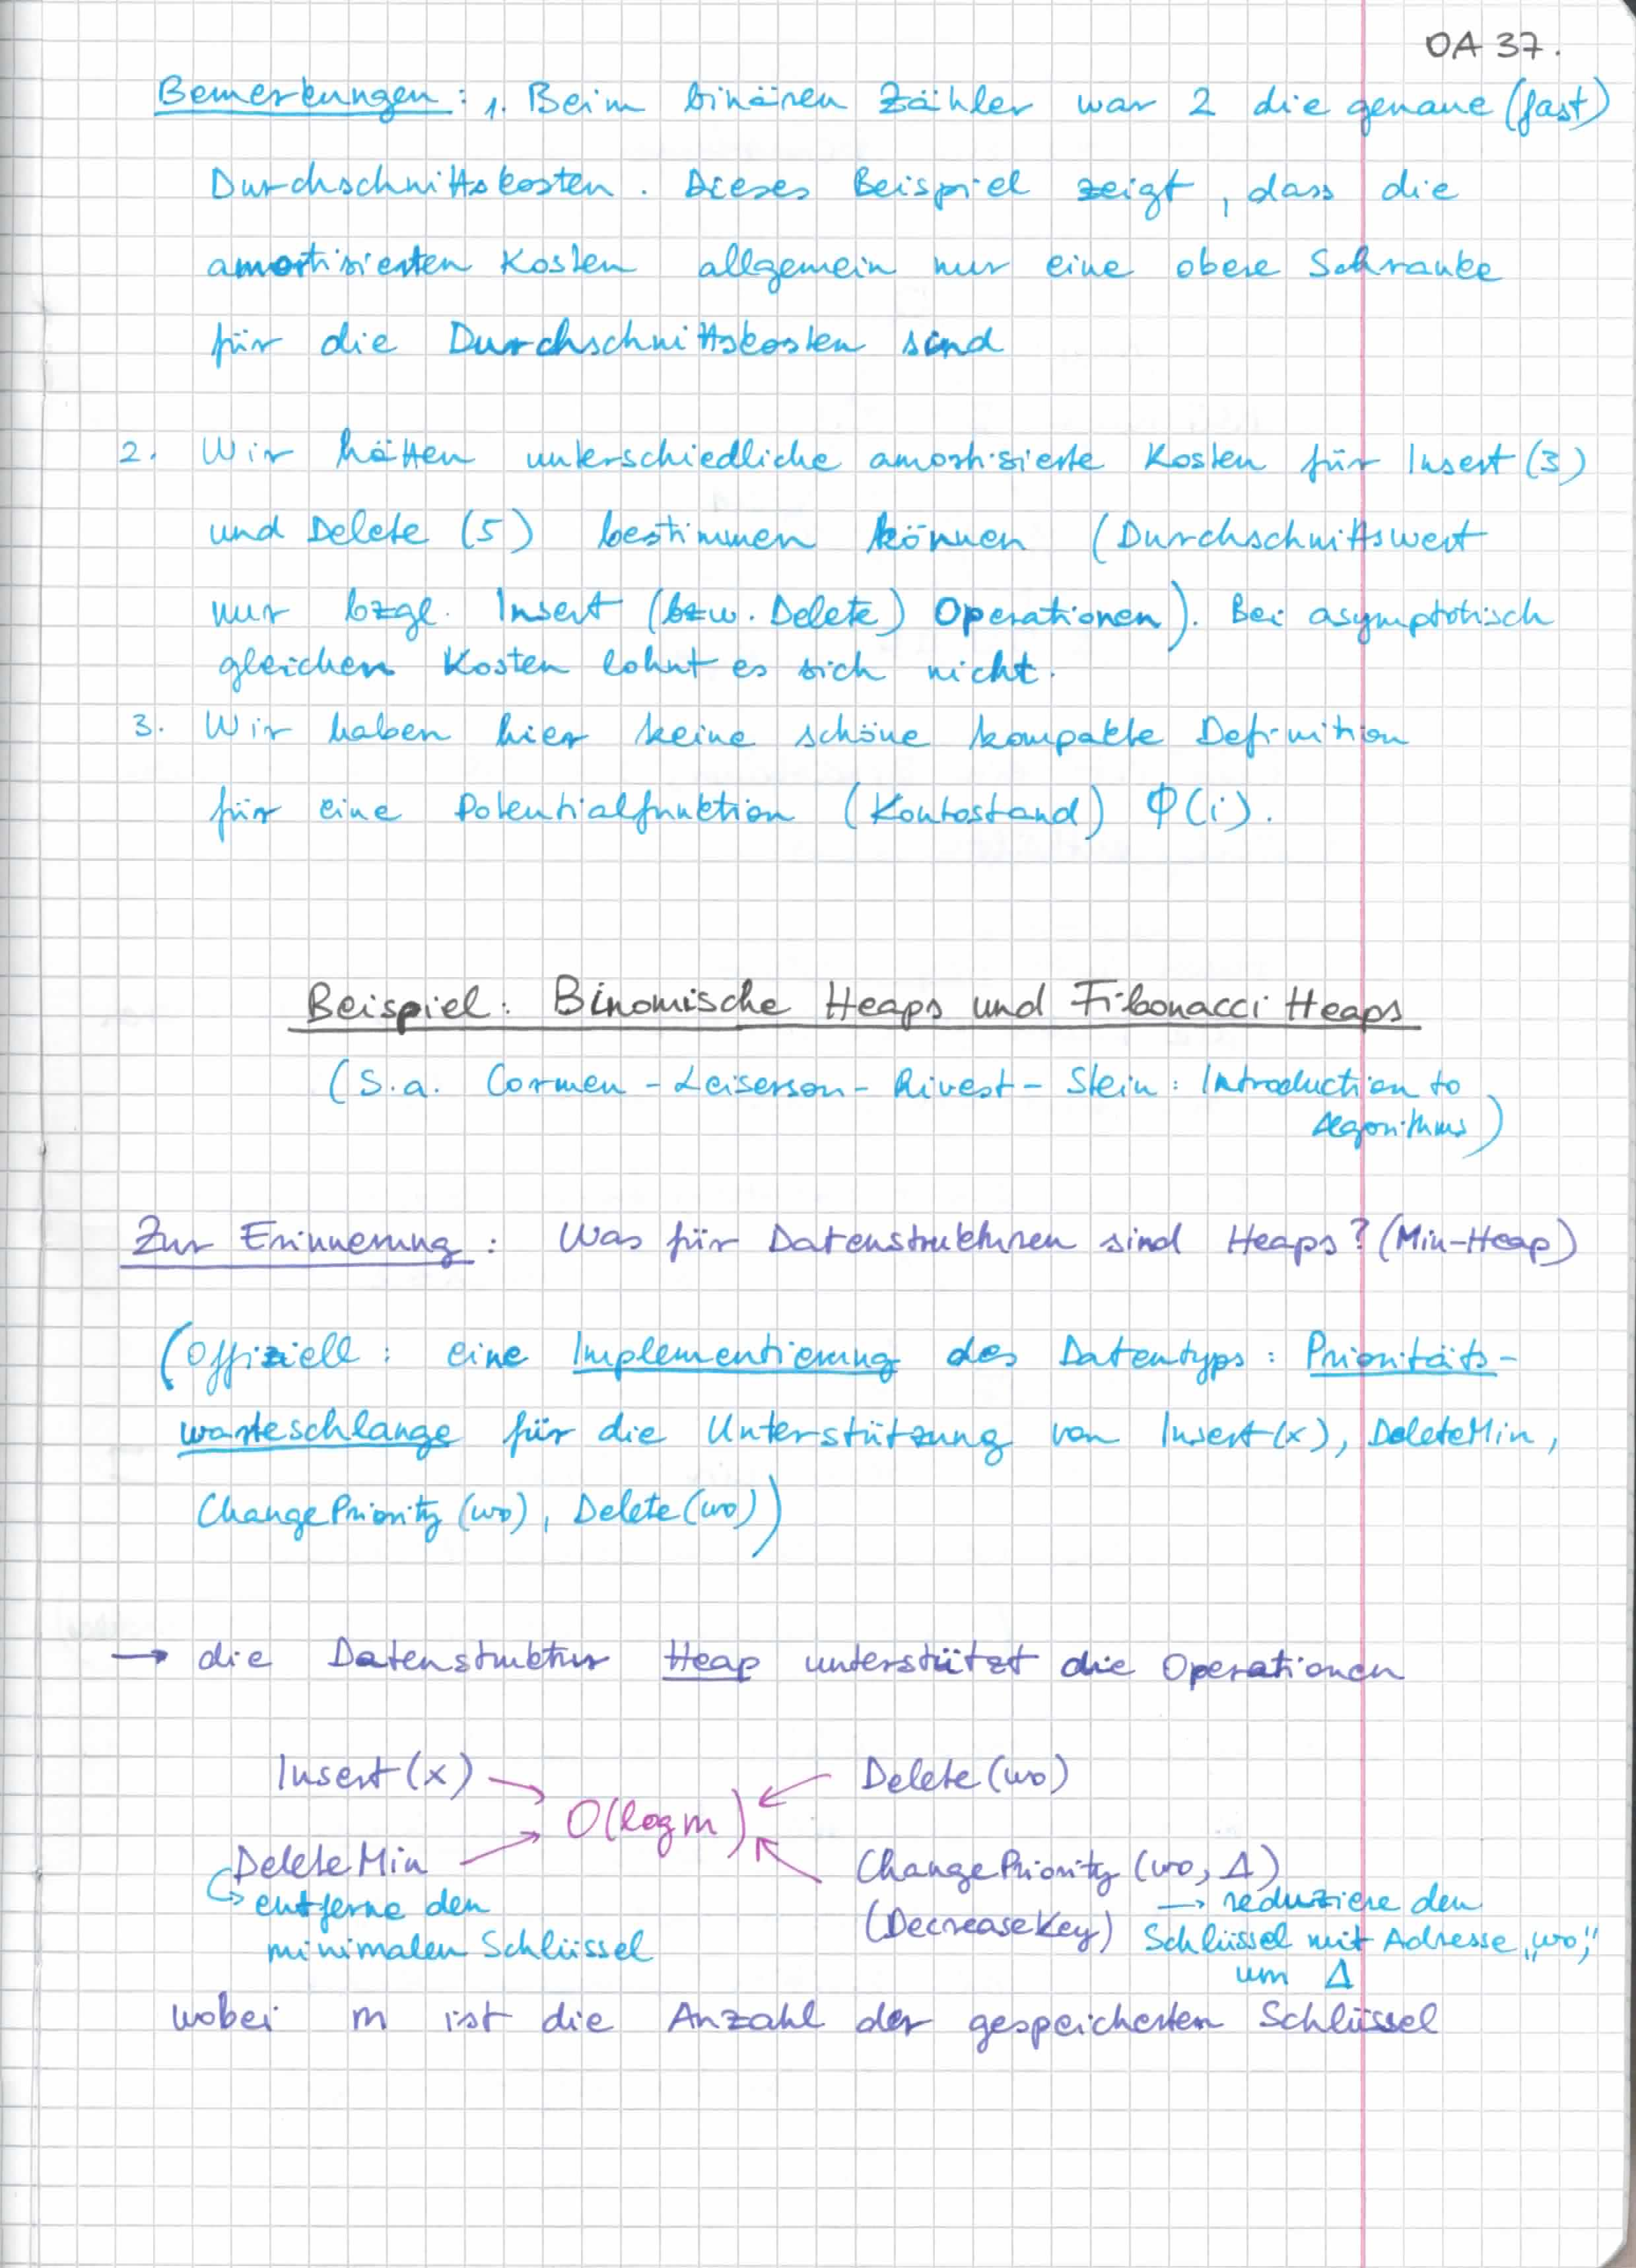 OA 37.
Bemerkungen: 1. Beim binären Zähler war 2 die genaue (fast)
Durchschnittskosten. Dieses Beispiel zeigt, dass die
amortisierten Kosten allgemein nur eine obere Schranke
für die Durchschnittskosten sind
2. Wir hätten unterschiedliche amortisierte Kosten für Insert (3)
und Delete (5) bestimmen können (Durchschnittswert
nur bzgl. Insert (bzw. Delete) Operationen). Bei asymptotisch
gleichen Kosten lohnt es sich nicht.
3. Wir haben hier keine schöne kompakte Definition
für eine Potentialfunktion (Kontostand) Φ(i).
Beispiel: Binomische Heaps und Fibonacci Heaps
(S.a. Cormen - Leiserson - Rivest - Stein: Introduction to
Algorithms)
Zur Erinnerung: Was für Datenstrukturen sind Heaps? (Min-Heap)
(Offiziell: eine Implementierung des Datentyps: Prioritäts-
warteschlange für die Unterstützung von Insert(x), DeleteMin,
ChangePriority (wo), Delete(wo))
→ die Datenstruktur Heap unterstützt die Operationen
Insert(x) Delete(wo)
O(log m)
DeleteMin ChangePriority (wo, Δ)
↪ entferne den → reduziere den
minimalen Schlüssel (DecreaseKey) Schlüssel mit Adresse „wo“
um Δ
wobei m ist die Anzahl der gespeicherten Schlüssel